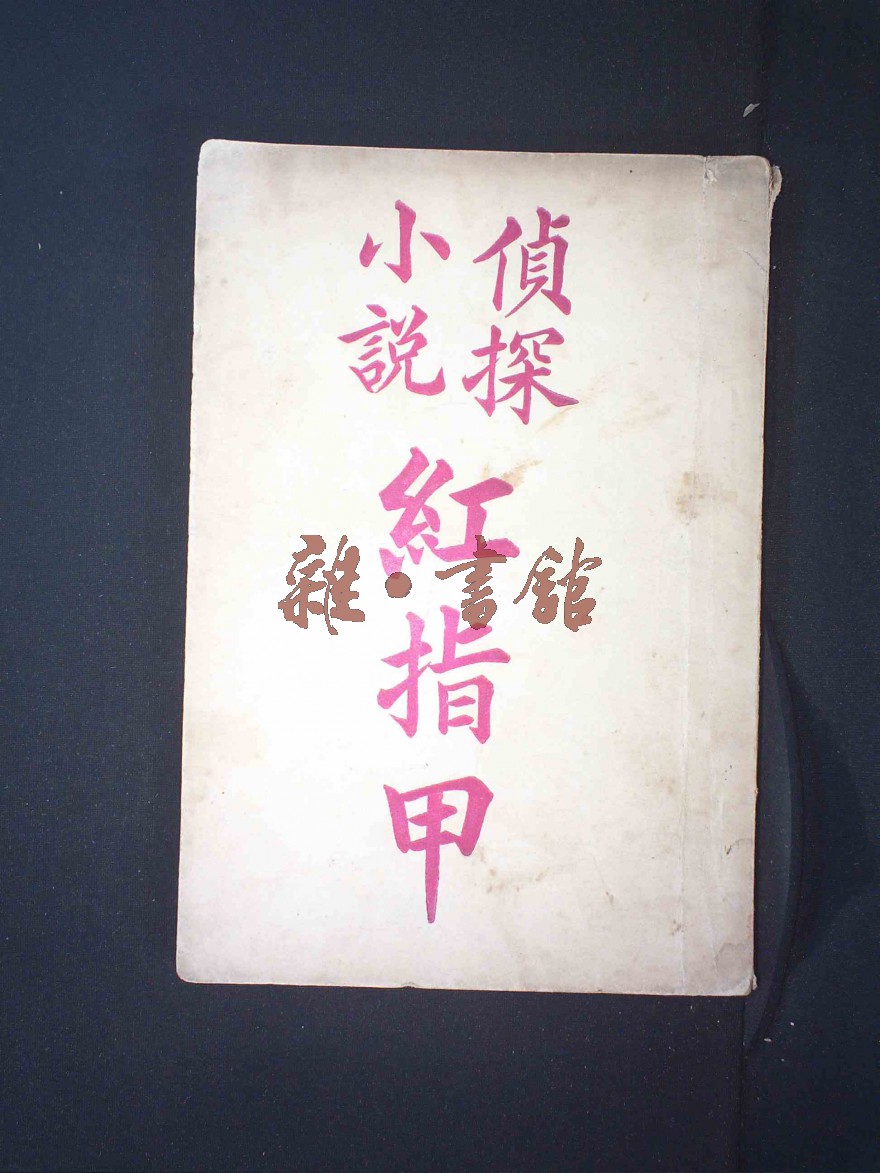 偵探
小説
紅指甲
雜·書館